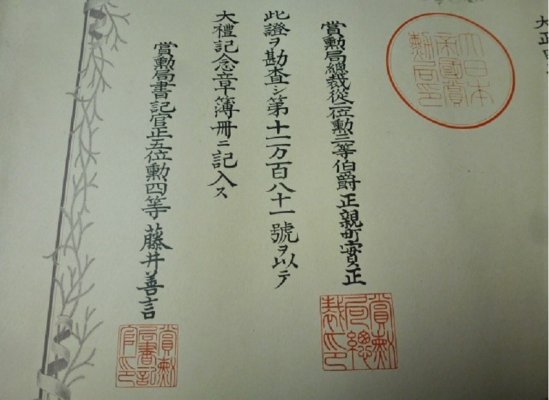 大正
大日本
帝國賞
勲局印
賞勲局總裁從二位勲二等伯爵正親町實正
賞勲
局總
裁印
此證ヲ勘査シ第十一万百八十一號ヲ以テ
大禮記念章簿冊ニ記入ス
賞勲局書記官正五位勲四等藤井善言
賞勲
局書記
官印